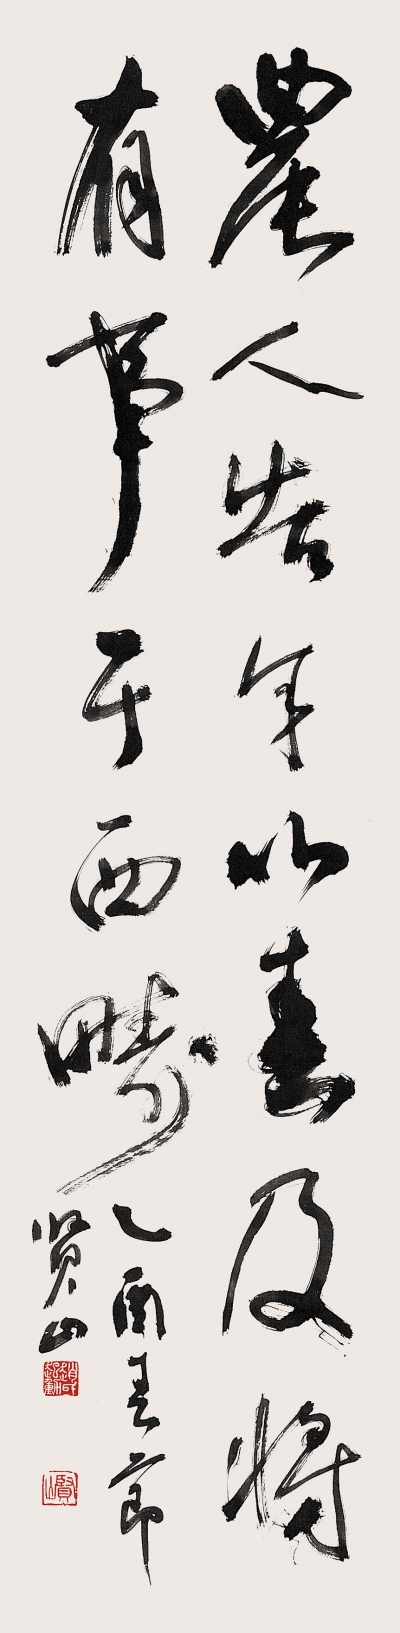 農人告余以春及將
有事于西疇
乙酉春節
賢山
賢山